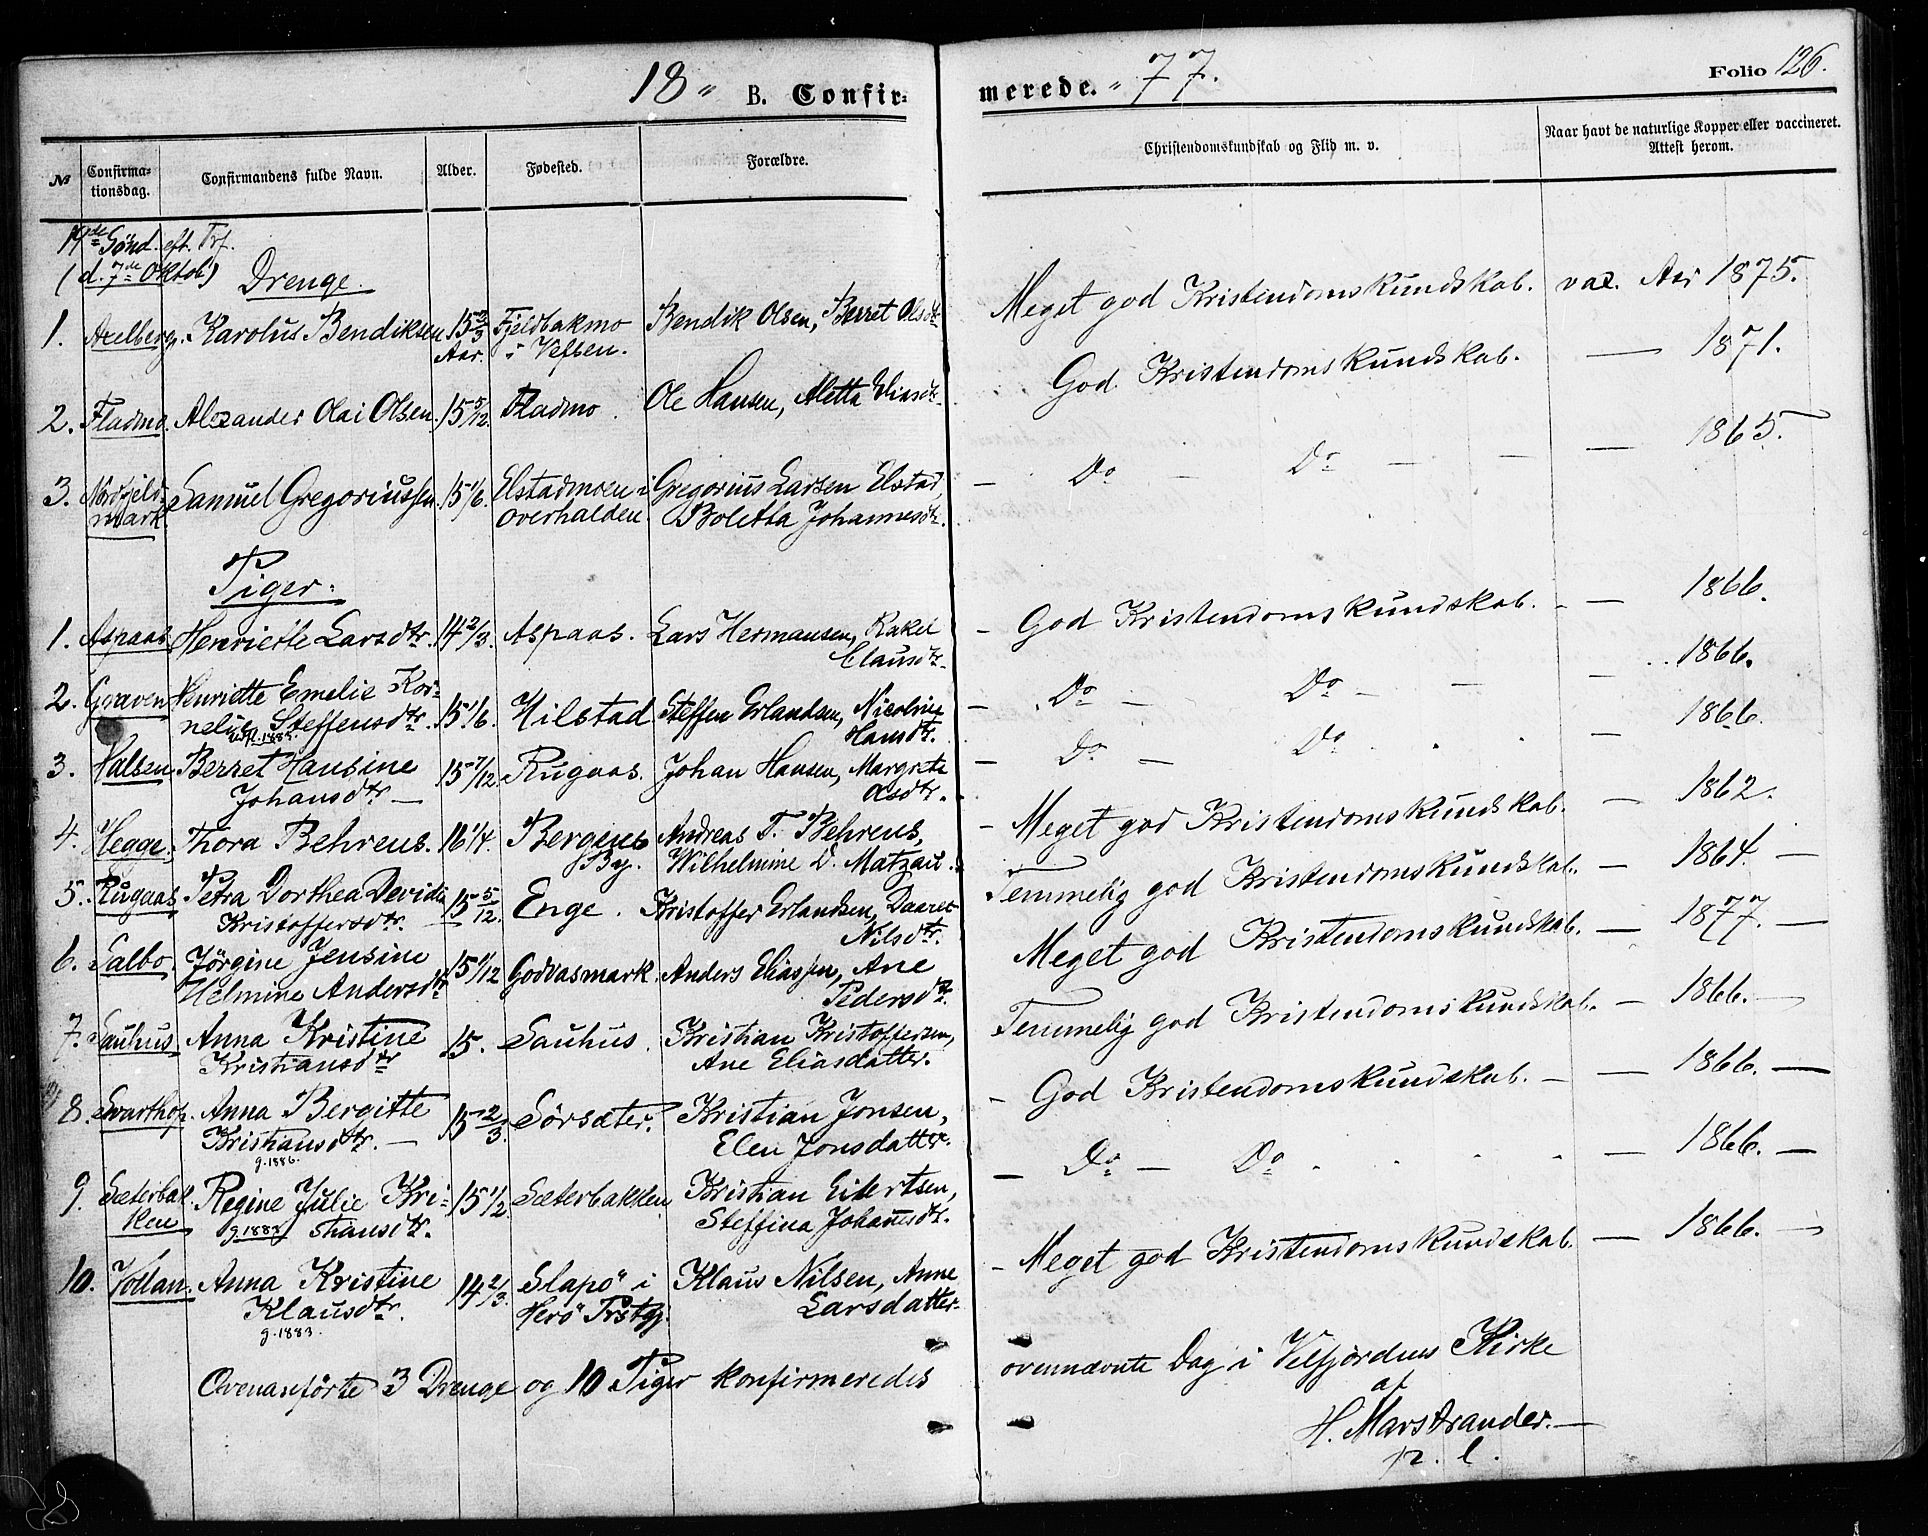 18 " B. Confir-
merede. " 77.
Folio 126.
№ Confirma-tionsdag. Confirmandens fulde Navn. Alder. Fødested. Forældre. Christendomskundskab og Flid m. v. Naar havt de naturlige Kopper eller vaccineret. Attest herom.
19de Sönd. eft. Trf.
(d. 7de Oktob.)
Drenge.
1. Axelberg. Karolus Bendiksen 15 2/3 Aar. Fjeldbakmo i Vefsen. Bendik Olsen, Berret Olsdtr. Meget god Kristendomskundskab. vac. Aar 1875.
2. Fladmo. Alexander Olai Olsen. 15 5/12. Fladmo. Ole Hansen, Aletta Eliasdtr. God Kristendomskundskab. — 1871.
3. Nordfjeld-mark. Samuel Gregoriussen. 15 1/6. Elstadmoen i Overhalden. Gregorius Larsen Elstad, Boletta Johannesdtr. — Do — Do — — 1865.
Piger.
1. Aspaas Henriette Larsdtr. 14 2/3. Aspaas. Lars Hermansen, Rakel Clausdtr. — God Kristendomskundskab. — 1866.
2. Graven Henriette Emelie Kor-nelia Steffensdtr. 15 1/6. Hilstad Steffen Erlandsen, Nicoline Hansdtr. — Do — Do — — 1866.
3. Halsen Berret Hansine Johansdtr. — 15 7/12. Rugaas. Johan Hansen, Margrete Asdtr. — Do — Do — 1866.
4. Hegge. Thora Behrens. 16 1/4. Bergens By. Andreas F. Behrens, Wilhelmine D. Matzau. — Meget god Kristendomskundskab. — 1862.
5. Rugaas Petra Dorthea Devidia Kristoffersdtr. 15 5/12. Enge. Kristoffer Erlandsen, Daaret Nilsdtr. Temmelig god Kristendomskundskab. — 1864. —
6. Salbo. Jörgine Jensine Helmine Andersdtr. 15 1/12 Godvasmark. Anders Eliassen, Ane Pedersdtr. Meget god Kristendomskundskab. — 1877. —
7. Sauhus. Anna Kristine Kristiansdtr 15. Sauhus. Kristian Kristoffersen, Ane Eliasdatter. Temmelig god Kristendomskundskab. — 1866. —
8. Svarthop. Anna Bergitte Kristiansdtr. — 15 2/3. Sörsæter. Kristian Jonsen, Elen Jonsdatter. — God Kristendomskundskab. — — 1866. —
g. 1886.
9. Sæterbak-ken Regine Julie Kri-stiansdtr. 15 1/2. Sæterbakken Kristian Eilertsen, Steffina Johansdtr. — Do — Do — 1866. —
10. Vollan. Anna Kristine Klausdtr. 14 2/3. Slapö i Herö Prstgj. Klaus Nilsen, Anne Larsdatter. — Meget god Kristendomskundskab. — 1866. —
g. 1883.
Ovenanförte 3 Drenge og 10 Piger konfirmeredes ovennævnte Dag i Velfjordens Kirke
af
H. Marstrander. —
p. l.